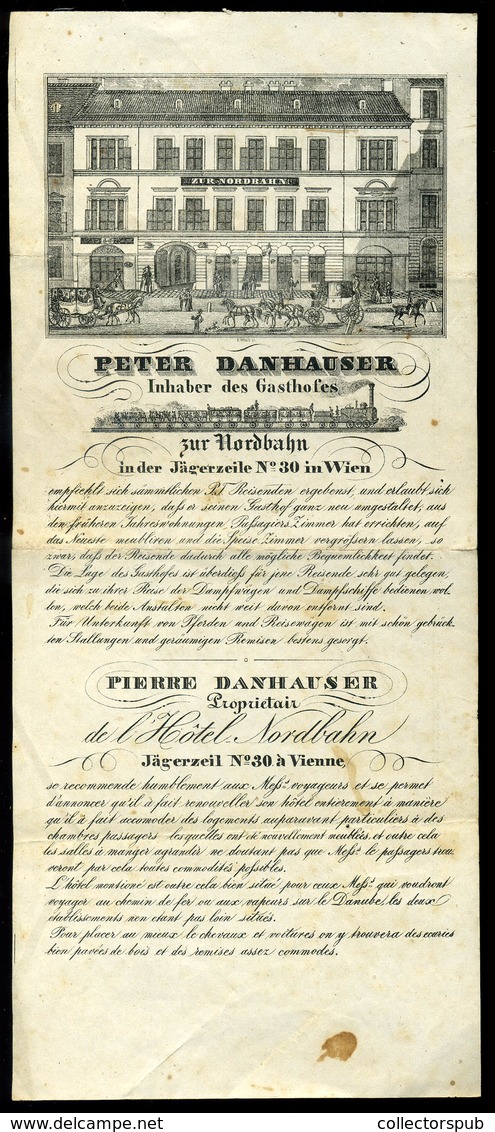 ZUR NORDBAHN.
PETER DANHAUSER
Inhaber des Gasthofes
zur Nordbahn
in der Jägerzeile No. 30 in Wien
empfiehlt sich sämmtlichen P.T. Reisenden ergebenst, und erlaubt sich
hiermit anzuzeigen, daß er seinen Gasthof ganz neu umgestaltet; aus
den früheren Jahreswohnungen, Passagiers Zimmer hat errichten, auf
das Neueste meubliren und die Speise Zimmer vergrößern lassen, so
zwar, daß der Reisende dadurch alle mögliche Bequemlichkeit findet.
Die Lage des Gasthofes ist überdieß für jene Reisende sehr gut gelegen,
die sich zu ihrer Reise der Dampfwägen und Dampfschiffe bedienen wol-
len, welch beide Anstalten nicht weit davon entfernt sind.
Für Unterkunft von Pferden und Reisewägen ist mit schön gebrück-
ten Stallungen und geräumigen Remisen bestens gesorgt.
PIERRE DANHAUSER
Proprietair
de l'Hôtel Nordbahn
Jägerzeil No. 30 à Vienne
se recommende humblement aux Meßrs. voyageurs et se permet
d'annoncer qu'il à fait renouveller son hôtel entièrement à manière
qu'il à fait accomoder des logements auparavant particuliers à des
chambres passagers lesquelles ont été nouvellement meublées, et outre cela
les salles à manger agrandir ne doutant pas que Meßrs. le paßagers trou-
veront par cela toutes commodités poßibles.
L'hôtel montioné est outre cela bien situé pour ceux Meßrs. qui voudront
voyager au chemin de fer ou aux vapeurs sur le Danube les deux
établissements non étant pas loin situés.
Pour placer au mieux le chevaux et voitures on y trouvera des ecuries
bien pavées de bois et des remises assez commodes.
www.delcampe.net
collectorspub